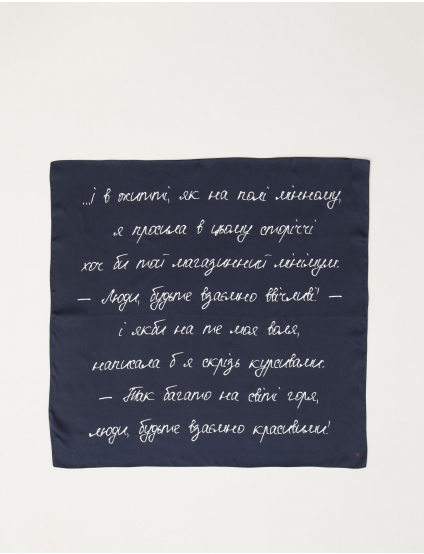 ...і в житті, як на полі мінному,
я просила в цьому сторіччі
хоч би той магазинний мінімум:
— Люди, будьте взаємно ввічливі! —
і якби на те моя воля,
написала б я скрізь курсивами:
— Так багато на світі горя,
люди, будьте взаємно красивими!